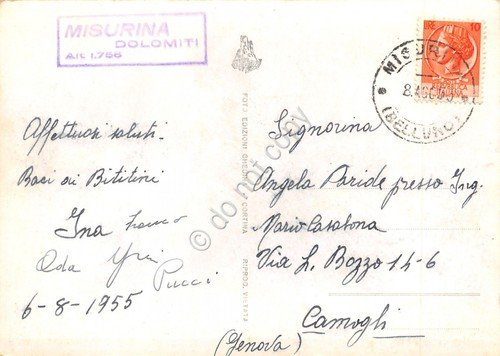 MISURINA
DOLOMITI
Alt. 1.756
Affettuosi saluti -
Baci ai Bititini
Ina Franco
Oda
Pucci
6-8-1955
FOTO EDIZIONI GHEDINA CORTINA RIPROD. VIETATA
do not copy
LIRE 10
MISURINA
(BELLUNO)
Signorina
Angela Paride presso Ing.
Mario Casabona
Via L. Bozzo 14-6
Camogli
(Genova)